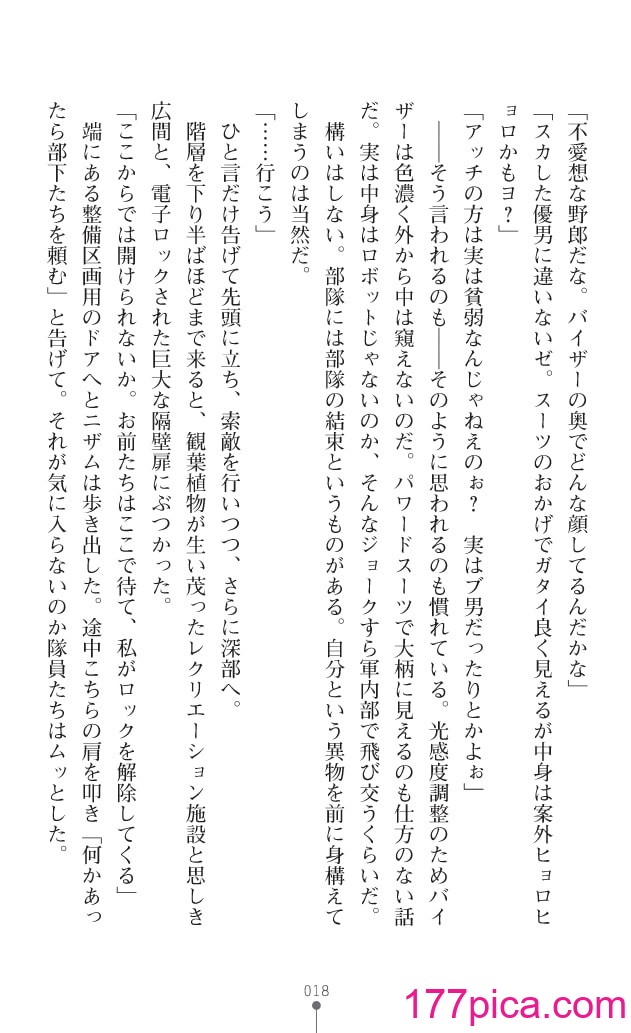 「不愛想な野郎だな。バイザーの奥でどんな顔してるんだかな」
「スカした優男に違いないゼ。スーツのおかげでガタイ良く見えるが中身は案外ヒョロヒ
ョロかもヨ？」
「アッチの方は実は貧弱なんじゃねえのぉ？　実はブ男だったりとかよぉ」
　――そう言われるのも――そのように思われるのも慣れている。光感度調整のためバイ
ザーは色濃く外から中は窺えないのだ。パワードスーツで大柄に見えるのも仕方のない話
だ。実は中身はロボットじゃないのか、そんなジョークすら軍内部で飛び交うくらいだ。
　構いはしない。部隊には部隊の結束というものがある。自分という異物を前に身構えて
しまうのは当然だ。
「……行こう」
　ひと言だけ告げて先頭に立ち、索敵を行いつつ、さらに深部へ。
　階層を下り半ばほどまで来ると、観葉植物が生い茂ったレクリエーション施設と思しき
広間と、電子ロックされた巨大な隔壁扉にぶつかった。
「ここからでは開けられないか。お前たちはここで待て、私がロックを解除してくる」
　端にある整備区画用のドアへとニザムは歩き出した。途中こちらの肩を叩き「何かあっ
たら部下たちを頼む」と告げて。それが気に入らないのか隊員たちはムッとした。
018
177pica.com